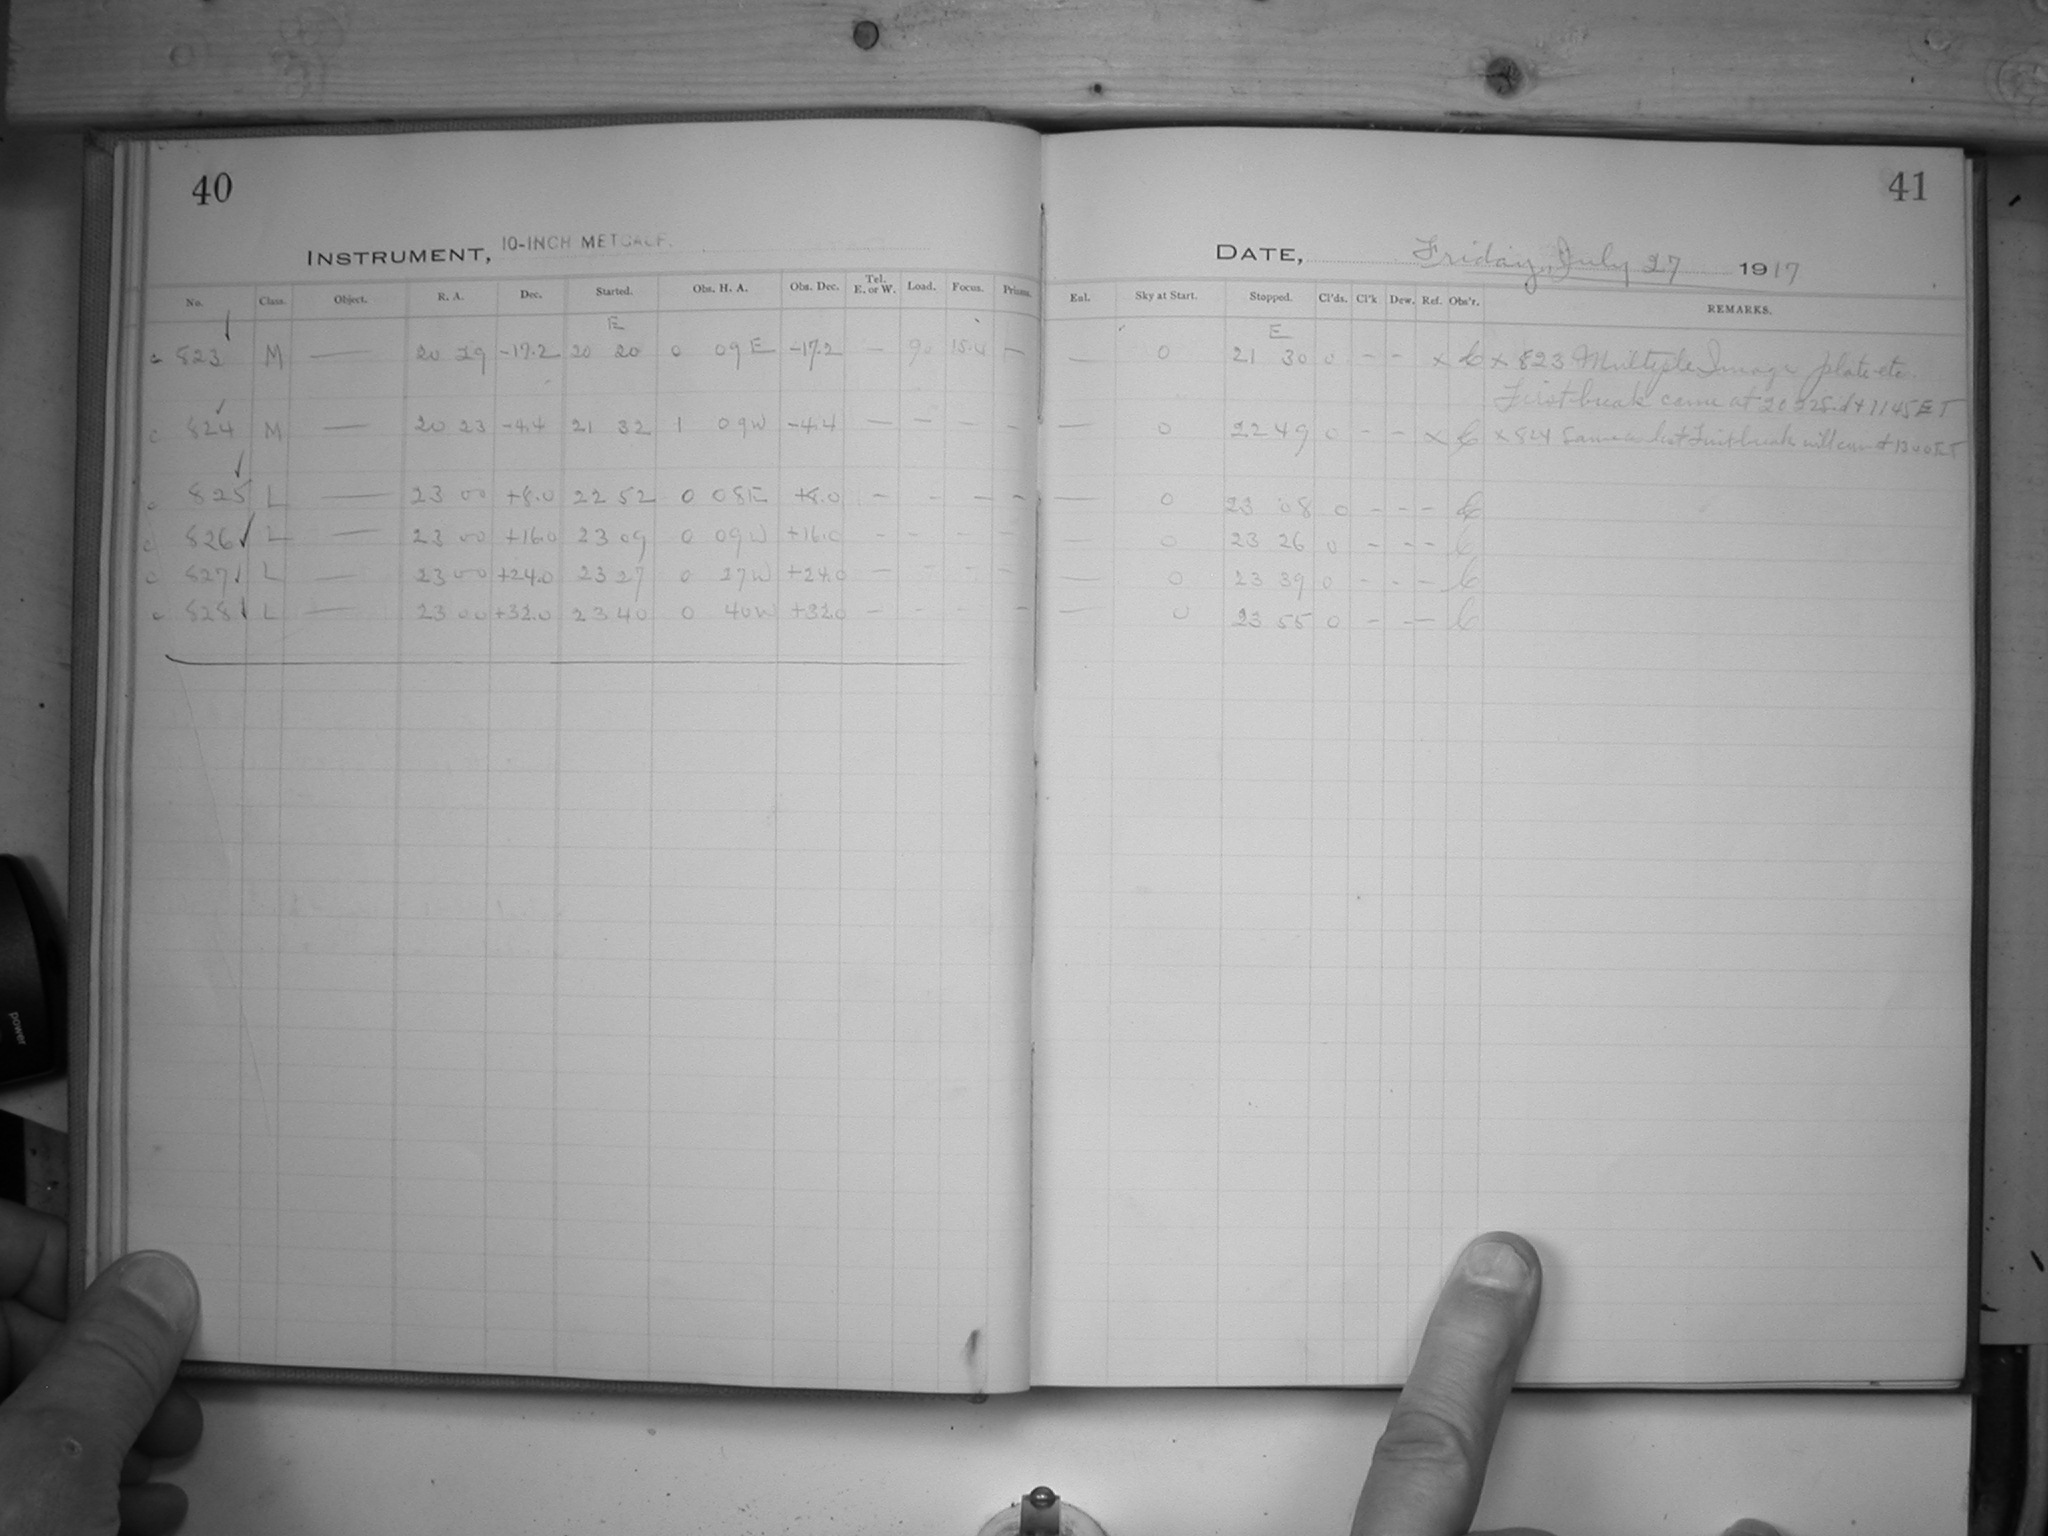 40
INSTRUMENT, 10-INCH METCALF.
No. Class. Object. R. A. Dec. Started. Obs. H. A. Obs. Dec. Tel. E. or W. Load. Focus. Prisms.
E
823 M — 20 29 -17.2 20 20 0 09 E -17.2 — 90 15.4 —
824 M — 20 23 -4.4 21 32 1 09W -4.4 — — — —
825 L — 23 00 +8.0 22 52 0 08E +8.0 - - - -
826 L — 23 00 +16.0 23 09 0 09W +16.0 - - - -
827 L — 23 00 +24.0 23 27 0 27W +24.0 — - - -
828 L — 23 00 +32.0 23 40 0 40W +32.0 - - - -
41
DATE, Friday, July 27 1917
Enl. Sky at Start. Stopped. Cl'ds. Cl'k Dew. Ref. Obs'r. REMARKS.
E
— 0 21 30 0 - - x C x 823 Multiple Image plate etc.
First break came at
— 0 22 49 0 - - x C x 824 Same as last First break
— 0 23 08 0 - - - C
— 0 23 26 0 - - - C
— 0 23 39 0 - - - C
— 0 23 55 0 - - - C
power